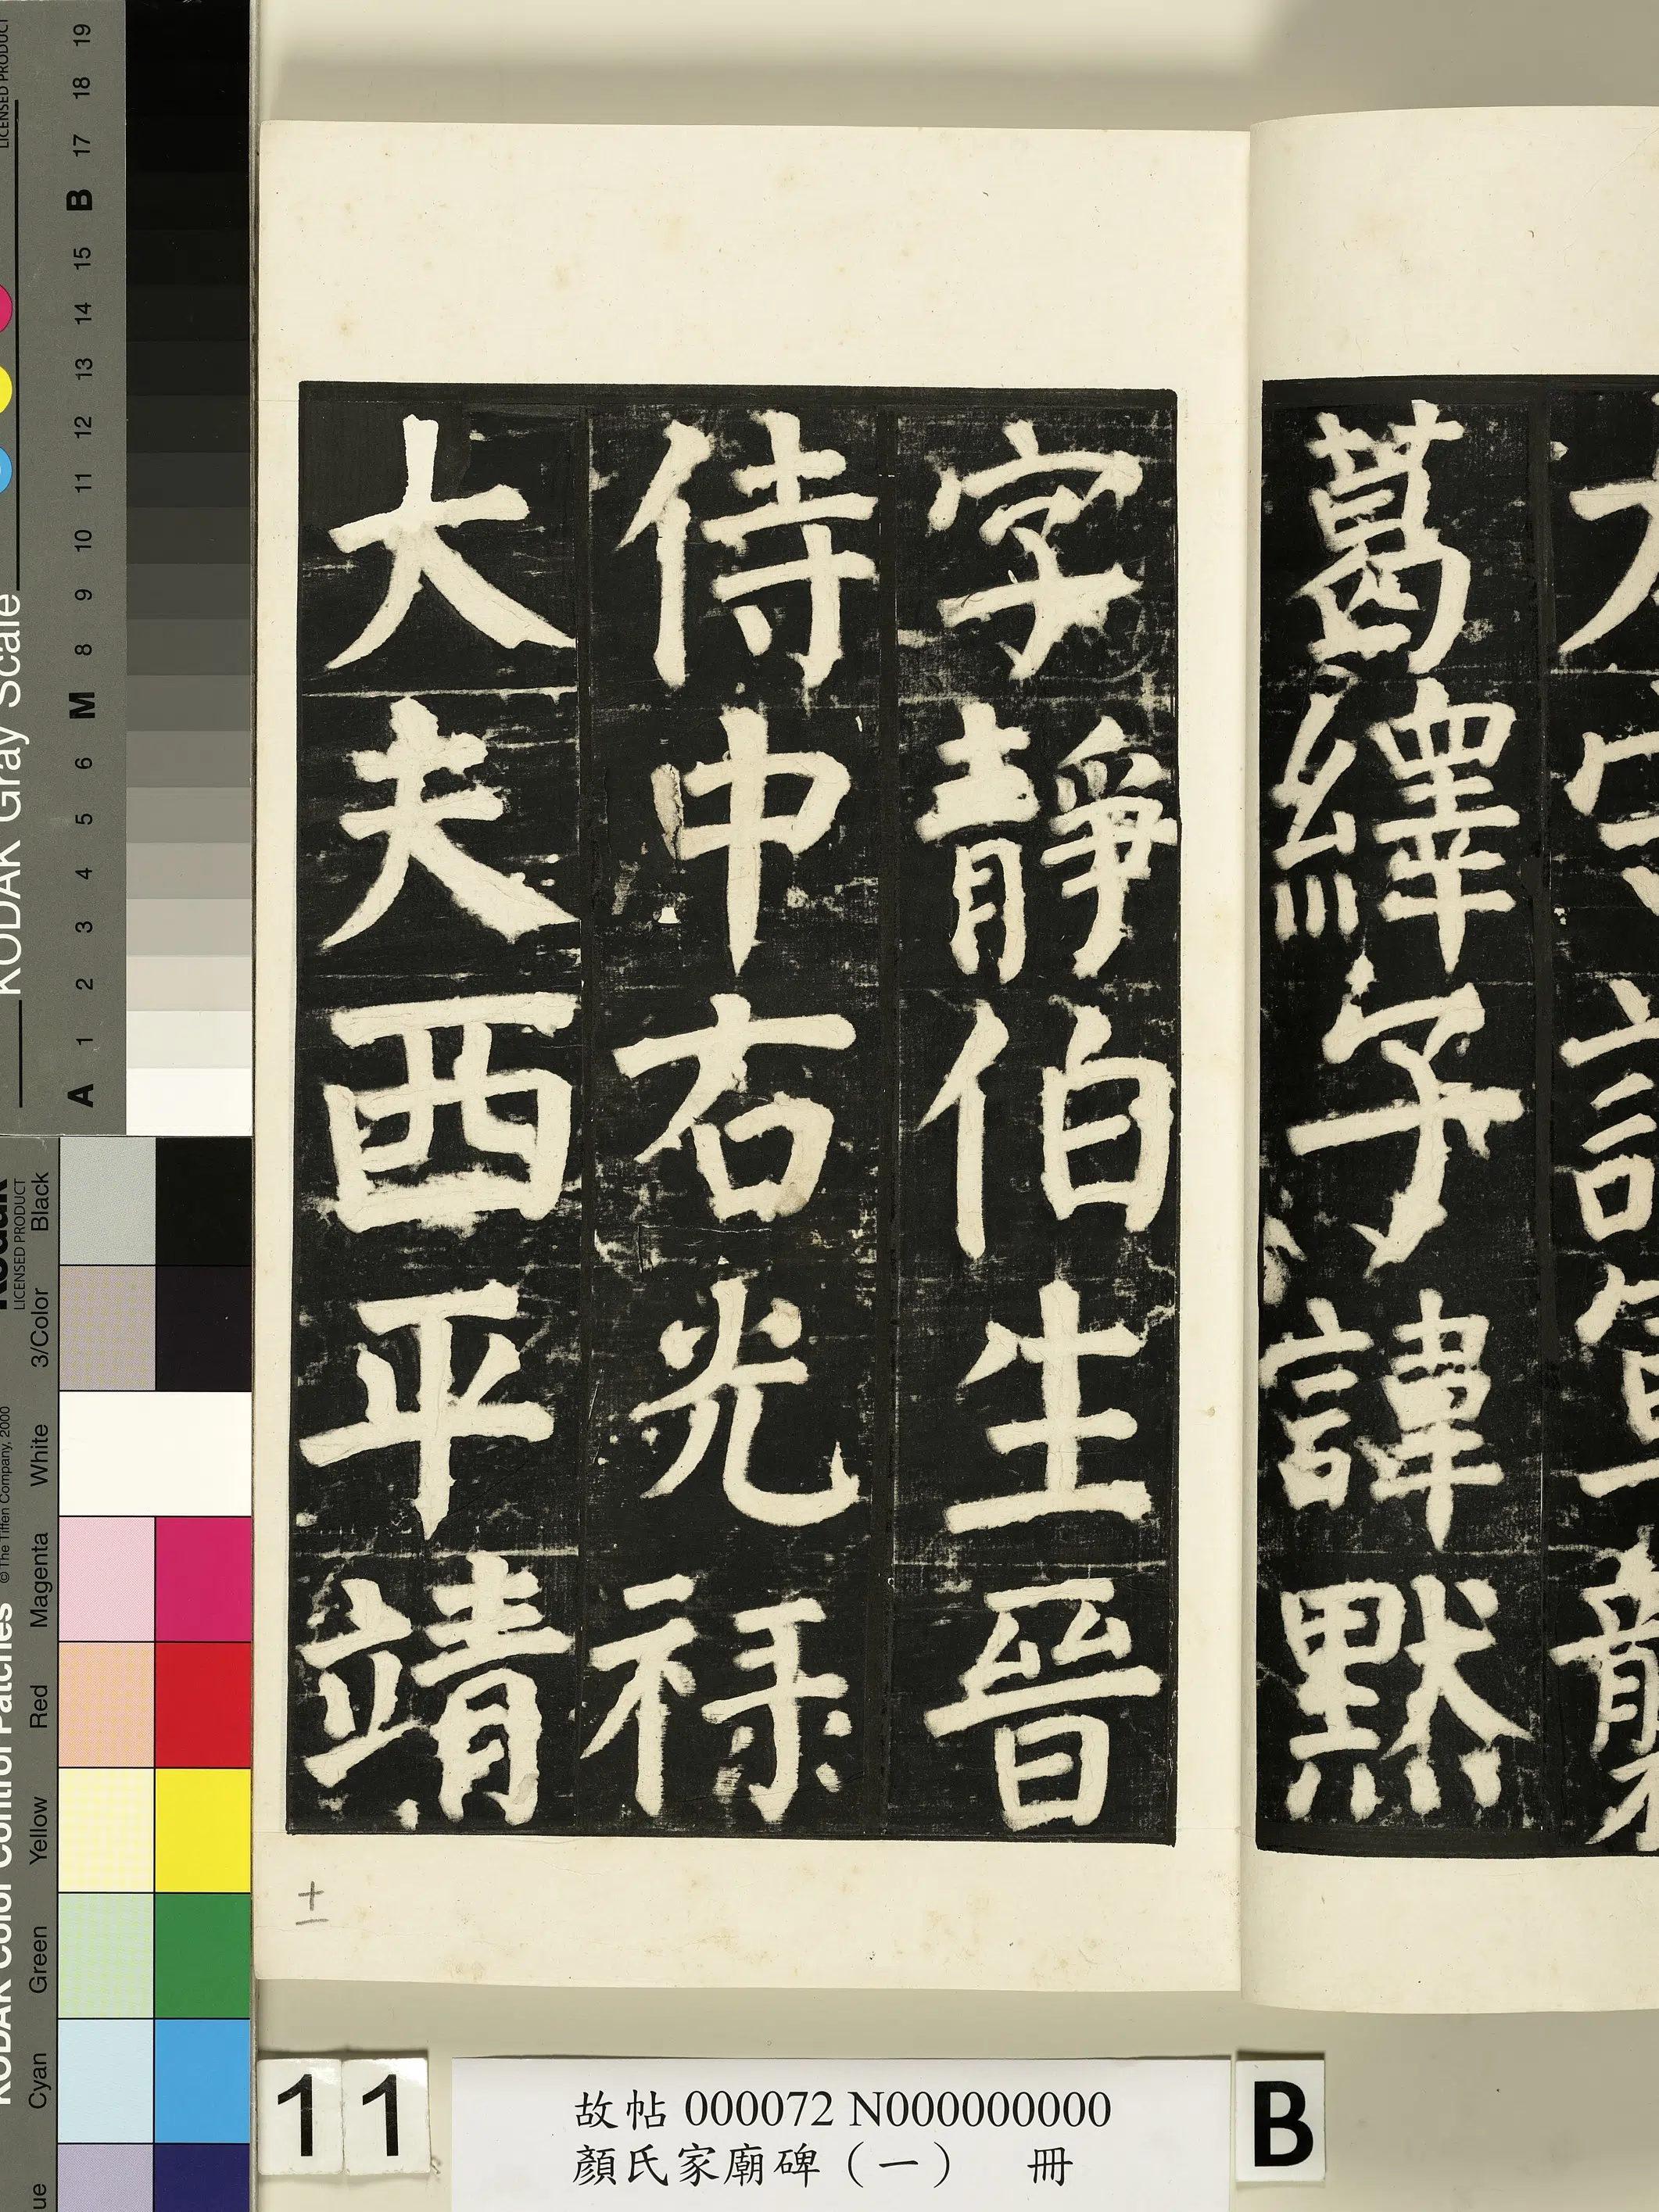 葛繹子諱默
字靜伯生晉
侍中右光祿
大夫西平靖
十一
11
故帖 000072 N000000000
顏氏家廟碑（一） 冊
B
KODAK Gray Scale
LICENSED PRODUCT
A 1 2 3 4 5 6 M 8 9 10 11 12 13 14 15 B 17 18 19
KODAK Color Control Patches
© The Tiffen Company, 2000
Kodak
LICENSED PRODUCT
Cyan Green Yellow Red Magenta White 3/Color Black